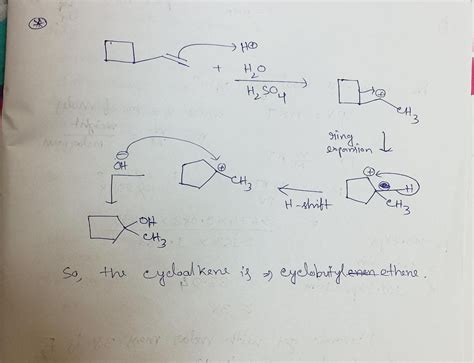 H⊕
+ H₂O
H₂SO₄
⊕
CH₃
ring
expansion
⊖
OH
⊕
CH₃
H-shift
⊕
H
CH₃
OH
CH₃
So, the cycloalkene is ⇒ cyclobutyl ethene.